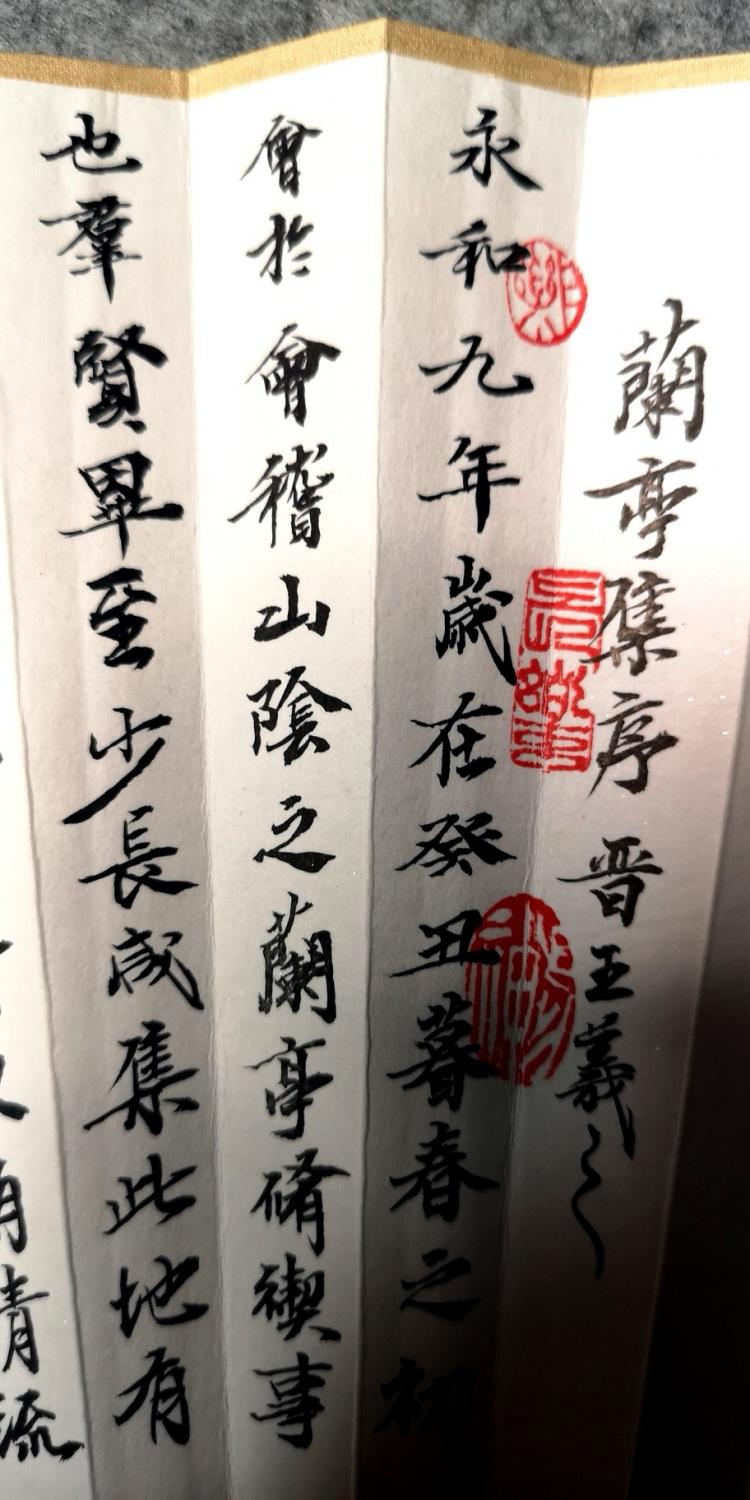 蘭亭集序 晋王羲之
永和九年歲在癸丑暮春之初
會於會稽山陰之蘭亭脩禊事
也羣賢畢至少長咸集此地有
清流